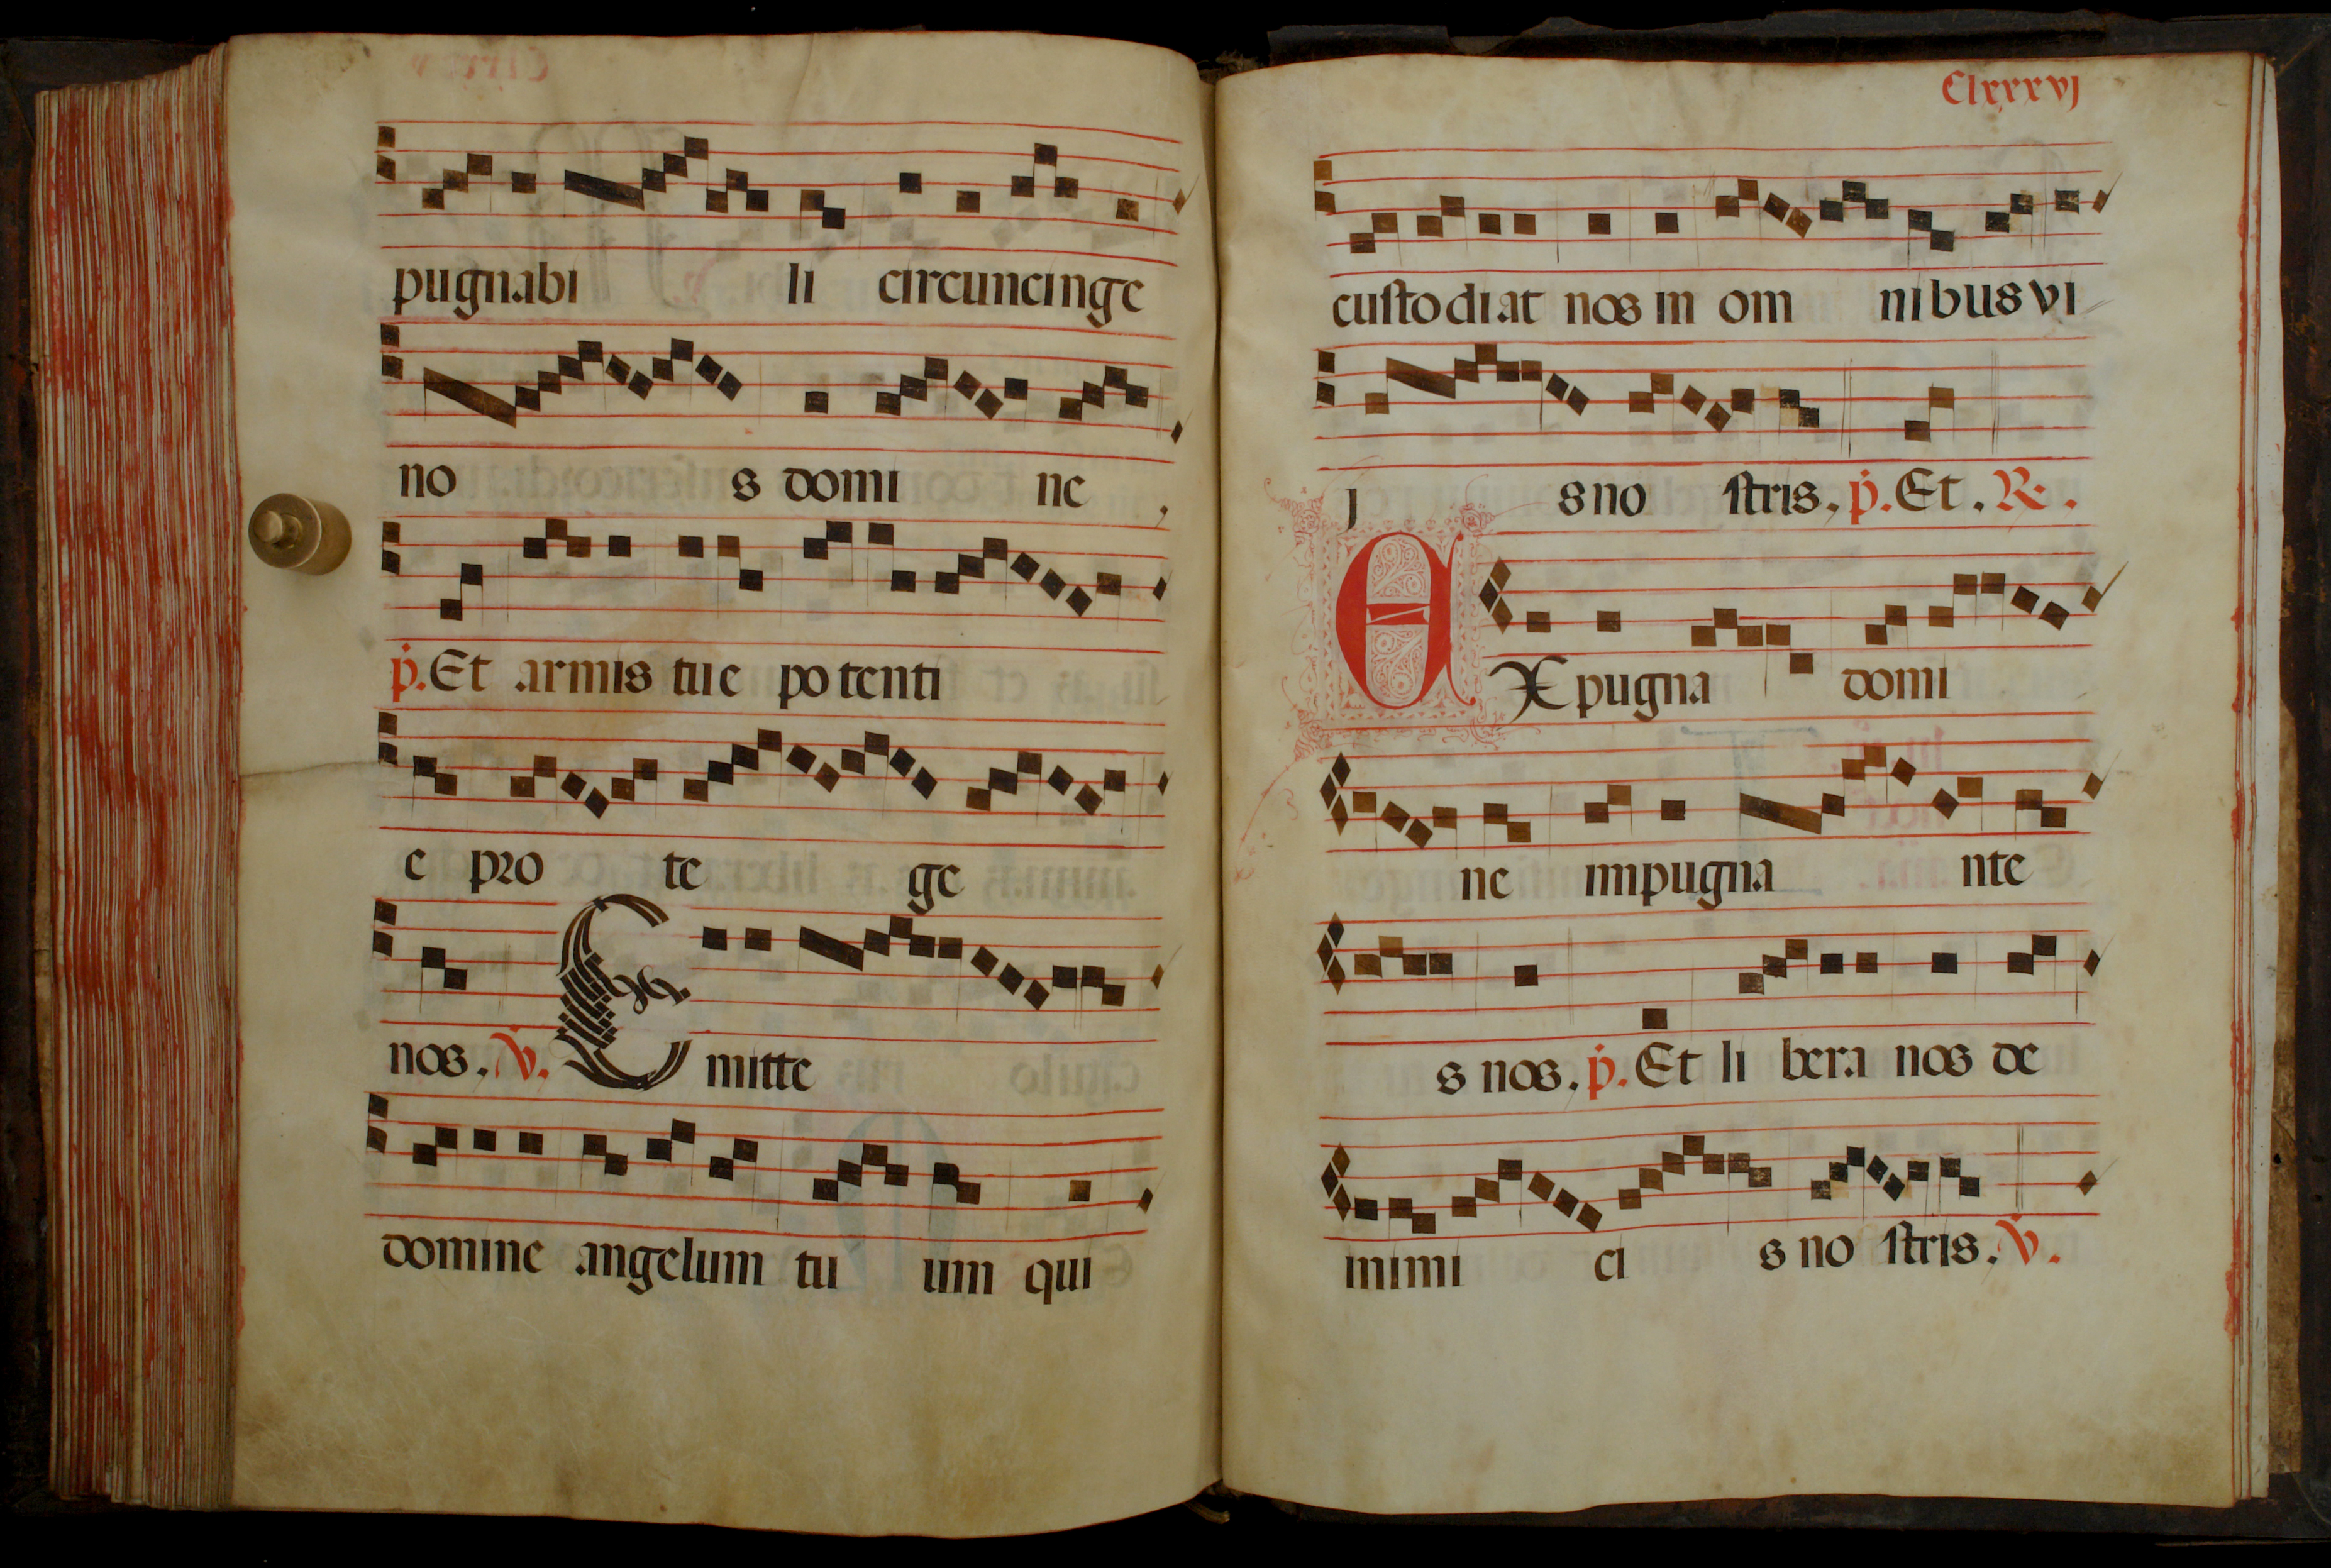 pugnabi li circuncinge
no s domi ne
p̄. Et armis tue potenti
e pro te ge
nos. V̄. Emitte
domine angelum tu um qui
Clxxxvj
custodiat nos in om nibus vi
j s no stris. p̄. Et. R.
EXpugna domi
ne impugna nte
s nos. p̄. Et li bera nos de
inimi ci s no stris. V̄.